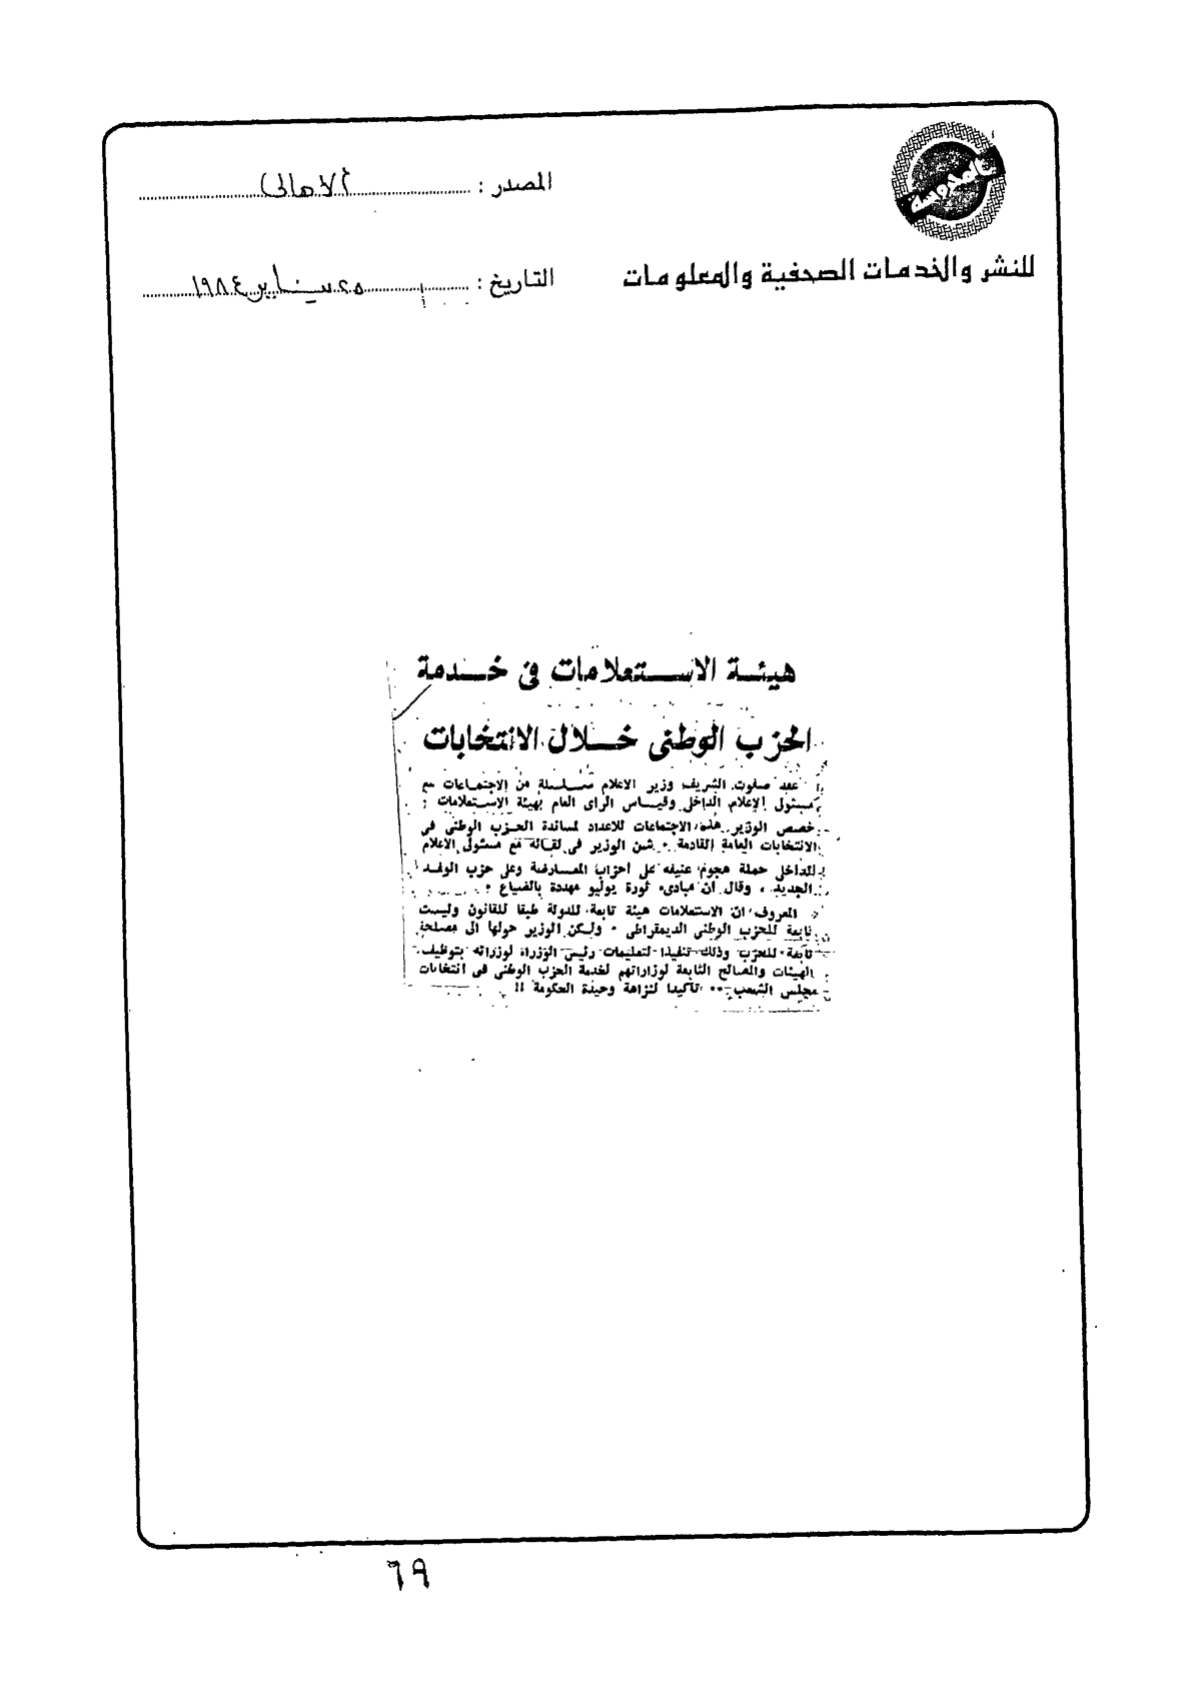 المحروسة
المصدر : الأهالى
للنشر والخدمات الصحفية والمعلومات
التاريخ : ٢٥ يناير ١٩٨٤
هيئة الاستعلامات فى خدمة
الحزب الوطنى خلال الانتخابات
عقد صفوت الشريف وزير الاعلام سلسلة من الاجتماعات مع
مسئولى الإعلام الداخلى وقياس الراى العام بهيئة الاستعلامات .
خصص الوزير هذه الاجتماعات للاعداد لمساندة الحزب الوطنى فى
الانتخابات العامة القادمة . شن الوزير فى لقائه مع مسئولى الاعلام
الداخلى حملة هجوم عنيفه على احزاب المعارضة وعلى حزب الوفد
الجديد . وقال ان مبادىء ثورة يوليو مهددة بالضياع .
المعروف ان الاستعلامات هيئة تابعة للدولة طبقا للقانون وليست
تابعة للحزب الوطنى الديمقراطى . ولكن الوزير حولها الى مصلحة
تابعة للحزب وذلك تنفيذا لتعليمات رئيس الوزراء لوزرائه بتوظيف
الهيئات والمصالح التابعة لوزاراتهم لخدمة الحزب الوطنى فى انتخابات
مجلس الشعب .. تأكيدا لنزاهة وحيدة الحكومة !!
٦٩